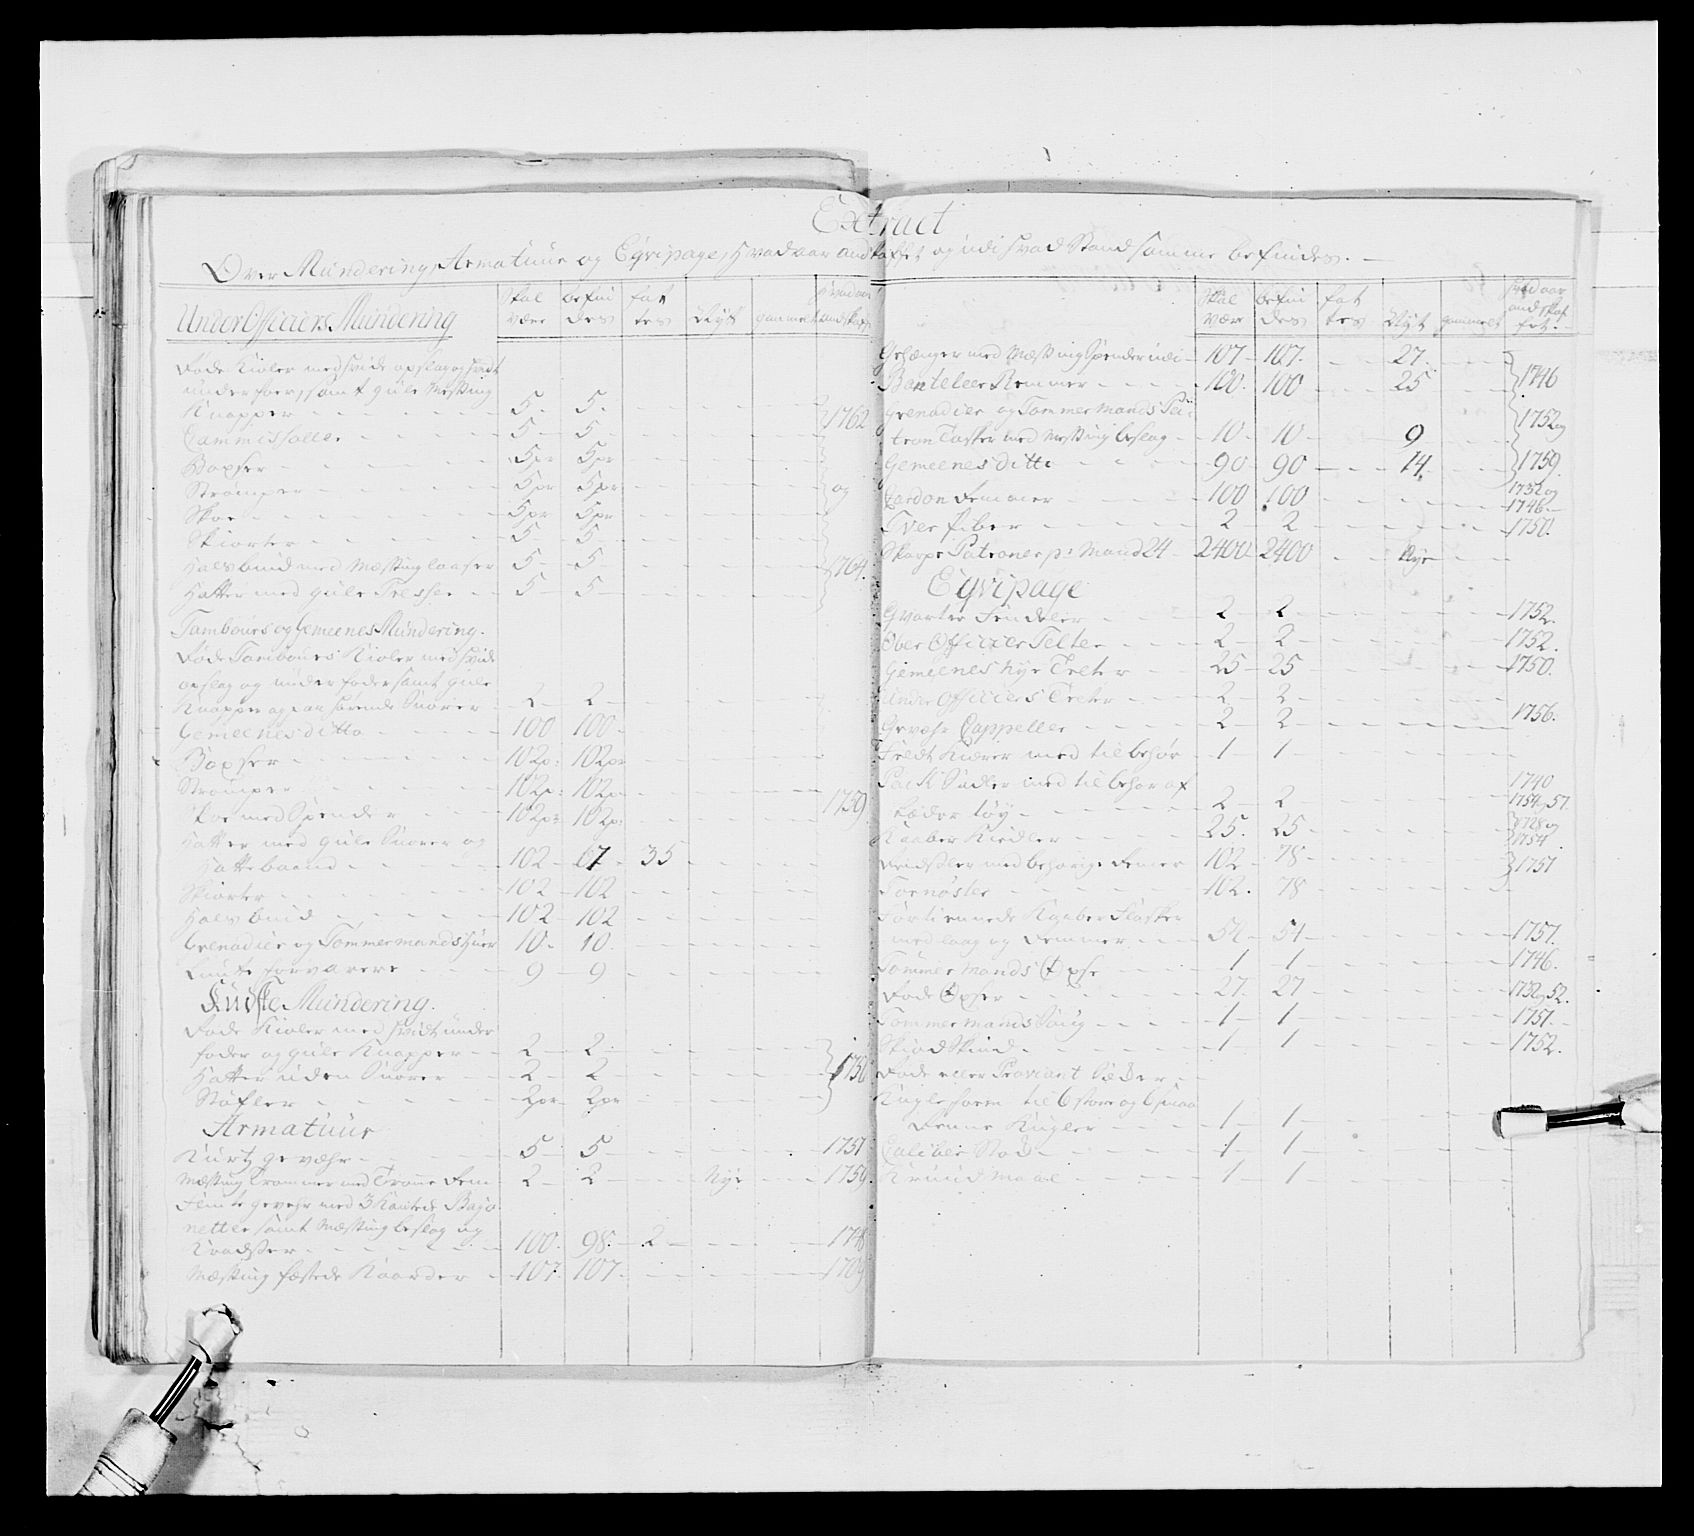 Extract
Over Mundering, Armatuur og Eqvipage, hvad aar andskaffet og udi hvad Stand samme befindes.
UnderOfficiers Mundering | Skal være | befindes | fattes | Nyt | gammelt | hvad aar andskaffet
Røde Kioler med hvide opslag og hvidt
underfoer, samt gule Messing
Knapper | 5 | 5 | 1762
Cammisholler | 5 | 5
Boxser | 5 pr | 5 pr
Strömper | 5 pr | 5 pr | og
Skoe | 5 pr | 5 pr
Skiorter | 5 | 5
Halsbind med Messing laaser | 5 | 5 | 1764.
Hatter med gule Tresser | 5 | 5
Tambours og Gemeenes Mundering.
Røde Tambours Kioler med hvide
opslag og underfoder samt gule
Knapper og Snorer | 2 | 2
Gemeenes ditto | 100 | 100
Boxser | 102 p: | 102 pr
Strömper | 102 p: | 102 p | 1759
Skoe med Spender | 102 pr | 102 p:
Hatter med gule Snorer og
Hattebaand | 102 | 67 | 35
Skiorter | 102 | 102
Halsbind | 102 | 102
Grenadier og Tømmermands Huer | 10 | 10
Lunteforvarere | 9 | 9
Kudske Mundering.
Røde Kioler med hvidt under
foder og gule Knapper | 2 | 2
Hatter uden Snorer | 2 | 2 | 1756
Støfler | 2 pr | 2 pr
Armatuur
Kurtz gevæhr | 5 | 5 | 1751
Messing Trommer med Tromme Rem | 2 | 2 | Nye | 1759.
Flinte gevehr med 3 Kantede Bajo
netter samt Messing beslag og
Kradser | 100 | 98 | 2 | 1748
Messing fæstede Kaarder | 107 | 107
Skal være | befindes | fattes | Nyt | gammelt | hvad aar andskaffet.
Gehænger med Messing Spender udi | 107 | 107 | 27 | 1746
Banteleer Remmer | 100 | 100 | 25
Grenadier og Tømmermands Pa
tron Tasker med Messing beslag | 10 | 10 | 9 | 1752 og
Gemeenes ditto | 90 | 90 | 14 | 1759.
Remmer | 100 | 100 | 1732 og 1746
Tver Piber | 2 | 2 | 1750.
Skarpe Patroner p: Mand 24 | 2400 | 2400 | Nye
Eqvipage
Qvarteer Fendeler | 2 | 2 | 1752.
Ober Officier Telter | 2 | 2 | 1752.
Gemeenes nye Telter | 25 | 25 | 1750.
Under Officiers Telter | 2 | 2
Gevæhr Cappeller | 2 | 2 | 1756.
Feldt Kiærer med tilbehør | 1 | 1
Pack Sadler med tilbehør af
Læder tøy | 2 | 2 | 1740 1754 og 57.
Kaaber Kiedler | 25 | 25 | 1728 og 1754
Rendsler med behørige Remer | 102 | 78 | 1751
Tornøster | 102 | 78
Fortinnede Kaaber Flasker
med laag og Remmer | 54 | 54 | 1751.
Tømmermands Øxse | 1 | 1 | 1746.
Røde Øxser | 27 | 27 | 1732 og 52.
Tømmermands Saug | 1 | 1 | 1751.
Skiød Skind | 1 | 1 | 1752.
Røde eller Proviant
Kugle form til 6 store og 6 smaa
Kugler | 1 | 1
Caliber Stok | 1 | 1
Krund Maal | 1 | 1